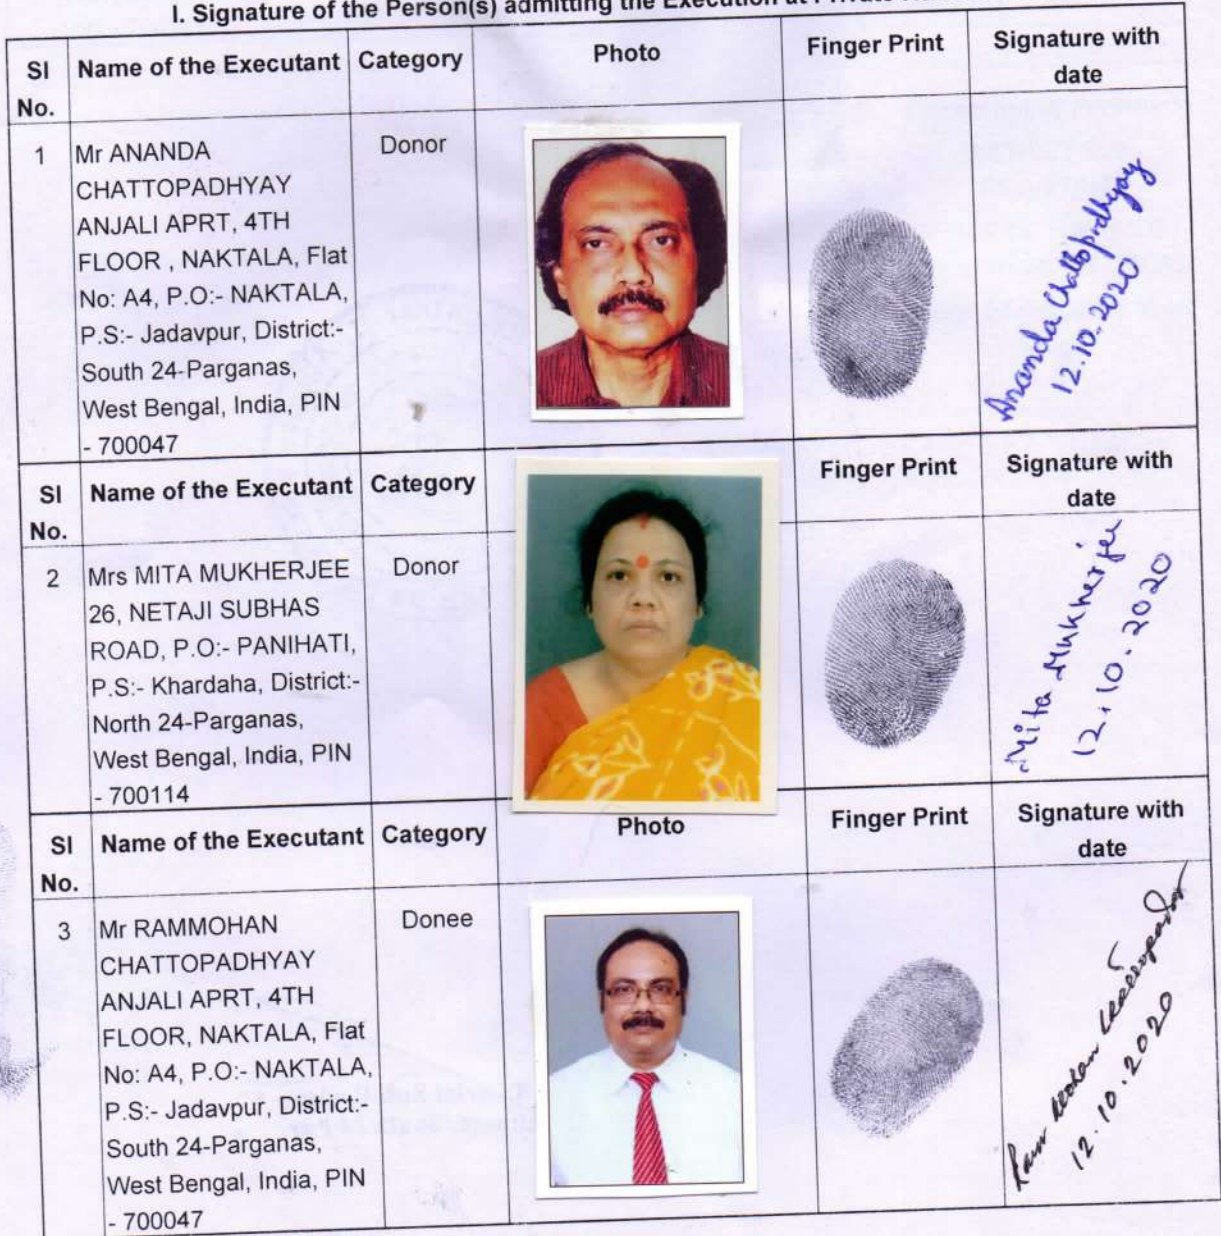 I. Signature of the Person(s) admitting the Execution at Private
SI No.
Name of the Executant
Category
Photo
Finger Print
Signature with date
1
Mr ANANDA
CHATTOPADHYAY
ANJALI APRT, 4TH
FLOOR , NAKTALA, Flat
No: A4, P.O:- NAKTALA,
P.S:- Jadavpur, District:-
South 24-Parganas,
West Bengal, India, PIN
- 700047
Donor
Ananda Chattopadhyay
12.10.2020
SI No.
Name of the Executant
Category
Finger Print
Signature with date
2
Mrs MITA MUKHERJEE
26, NETAJI SUBHAS
ROAD, P.O:- PANIHATI,
P.S:- Khardaha, District:-
North 24-Parganas,
West Bengal, India, PIN
- 700114
Donor
Mita Mukherjee
12.10.2020
SI No.
Name of the Executant
Category
Photo
Finger Print
Signature with date
3
Mr RAMMOHAN
CHATTOPADHYAY
ANJALI APRT, 4TH
FLOOR, NAKTALA, Flat
No: A4, P.O:- NAKTALA,
P.S:- Jadavpur, District:-
South 24-Parganas,
West Bengal, India, PIN
- 700047
Donee
12.10.2020